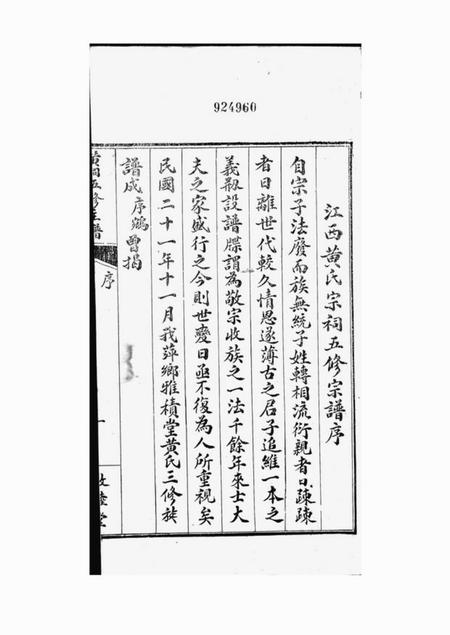 924960
江西黄氏宗祠五修宗譜序
自宗子法廢而族無統子姓轉相流衍親者日疎疎
者日離世代較久情恩遂薄古之君子追維一本之
義剏設譜牒謂為敬宗收族之一法千餘年來士大
夫之家盛行之今則世變日亟不復為人所重視矣
民國二十一年十一月我萍鄉雅積堂黄氏三修族
譜成序鵷曾揭
黄祠五修主譜
序
一
敦睦堂